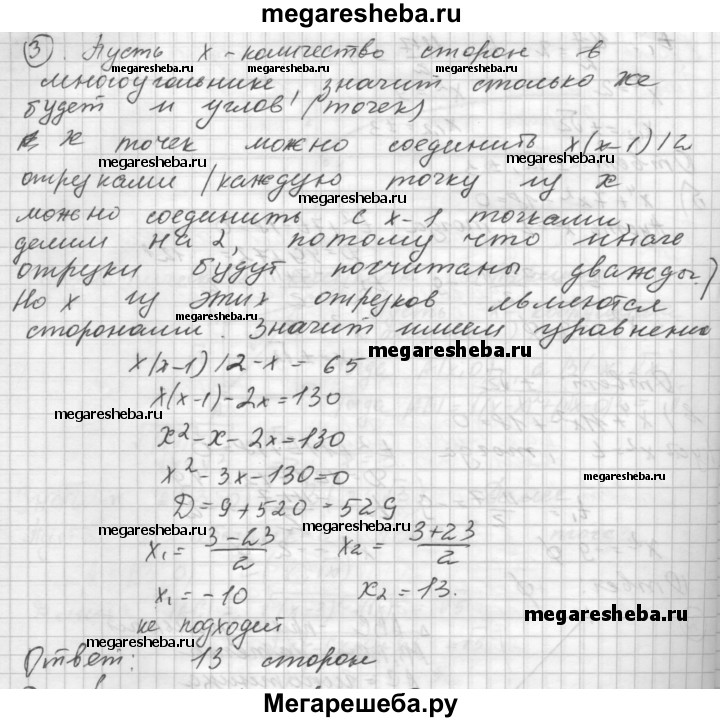 megaresheba.ru
③. Пусть x - количество сторон в
многоугольнике значит столько же
будет и углов (точек)
x точек можно соединить x(x-1)/2
megaresheba.ru
megaresheba.ru
отрезками (каждую точку из x
можно соединить с x-1 точками,
делим на 2, потому что иначе
отрезки будут посчитаны дважды.)
Но x из этих отрезков являются
сторонами. Значит имеем уравнение
megaresheba.ru
x(x-1)/2-x = 65
x(x-1)-2x=130
megaresheba.ru
x²-x-2x=130
x²-3x-130=0
megaresheba.ru
D=9+520=529
megaresheba.ru
x₁= (3-23)/2 x₂= (3+23)/2
x₁=-10 x₂=13.
megaresheba.ru
не подходит
megaresheba.ru
Ответ: 13 сторон
Мегарешеба.ру